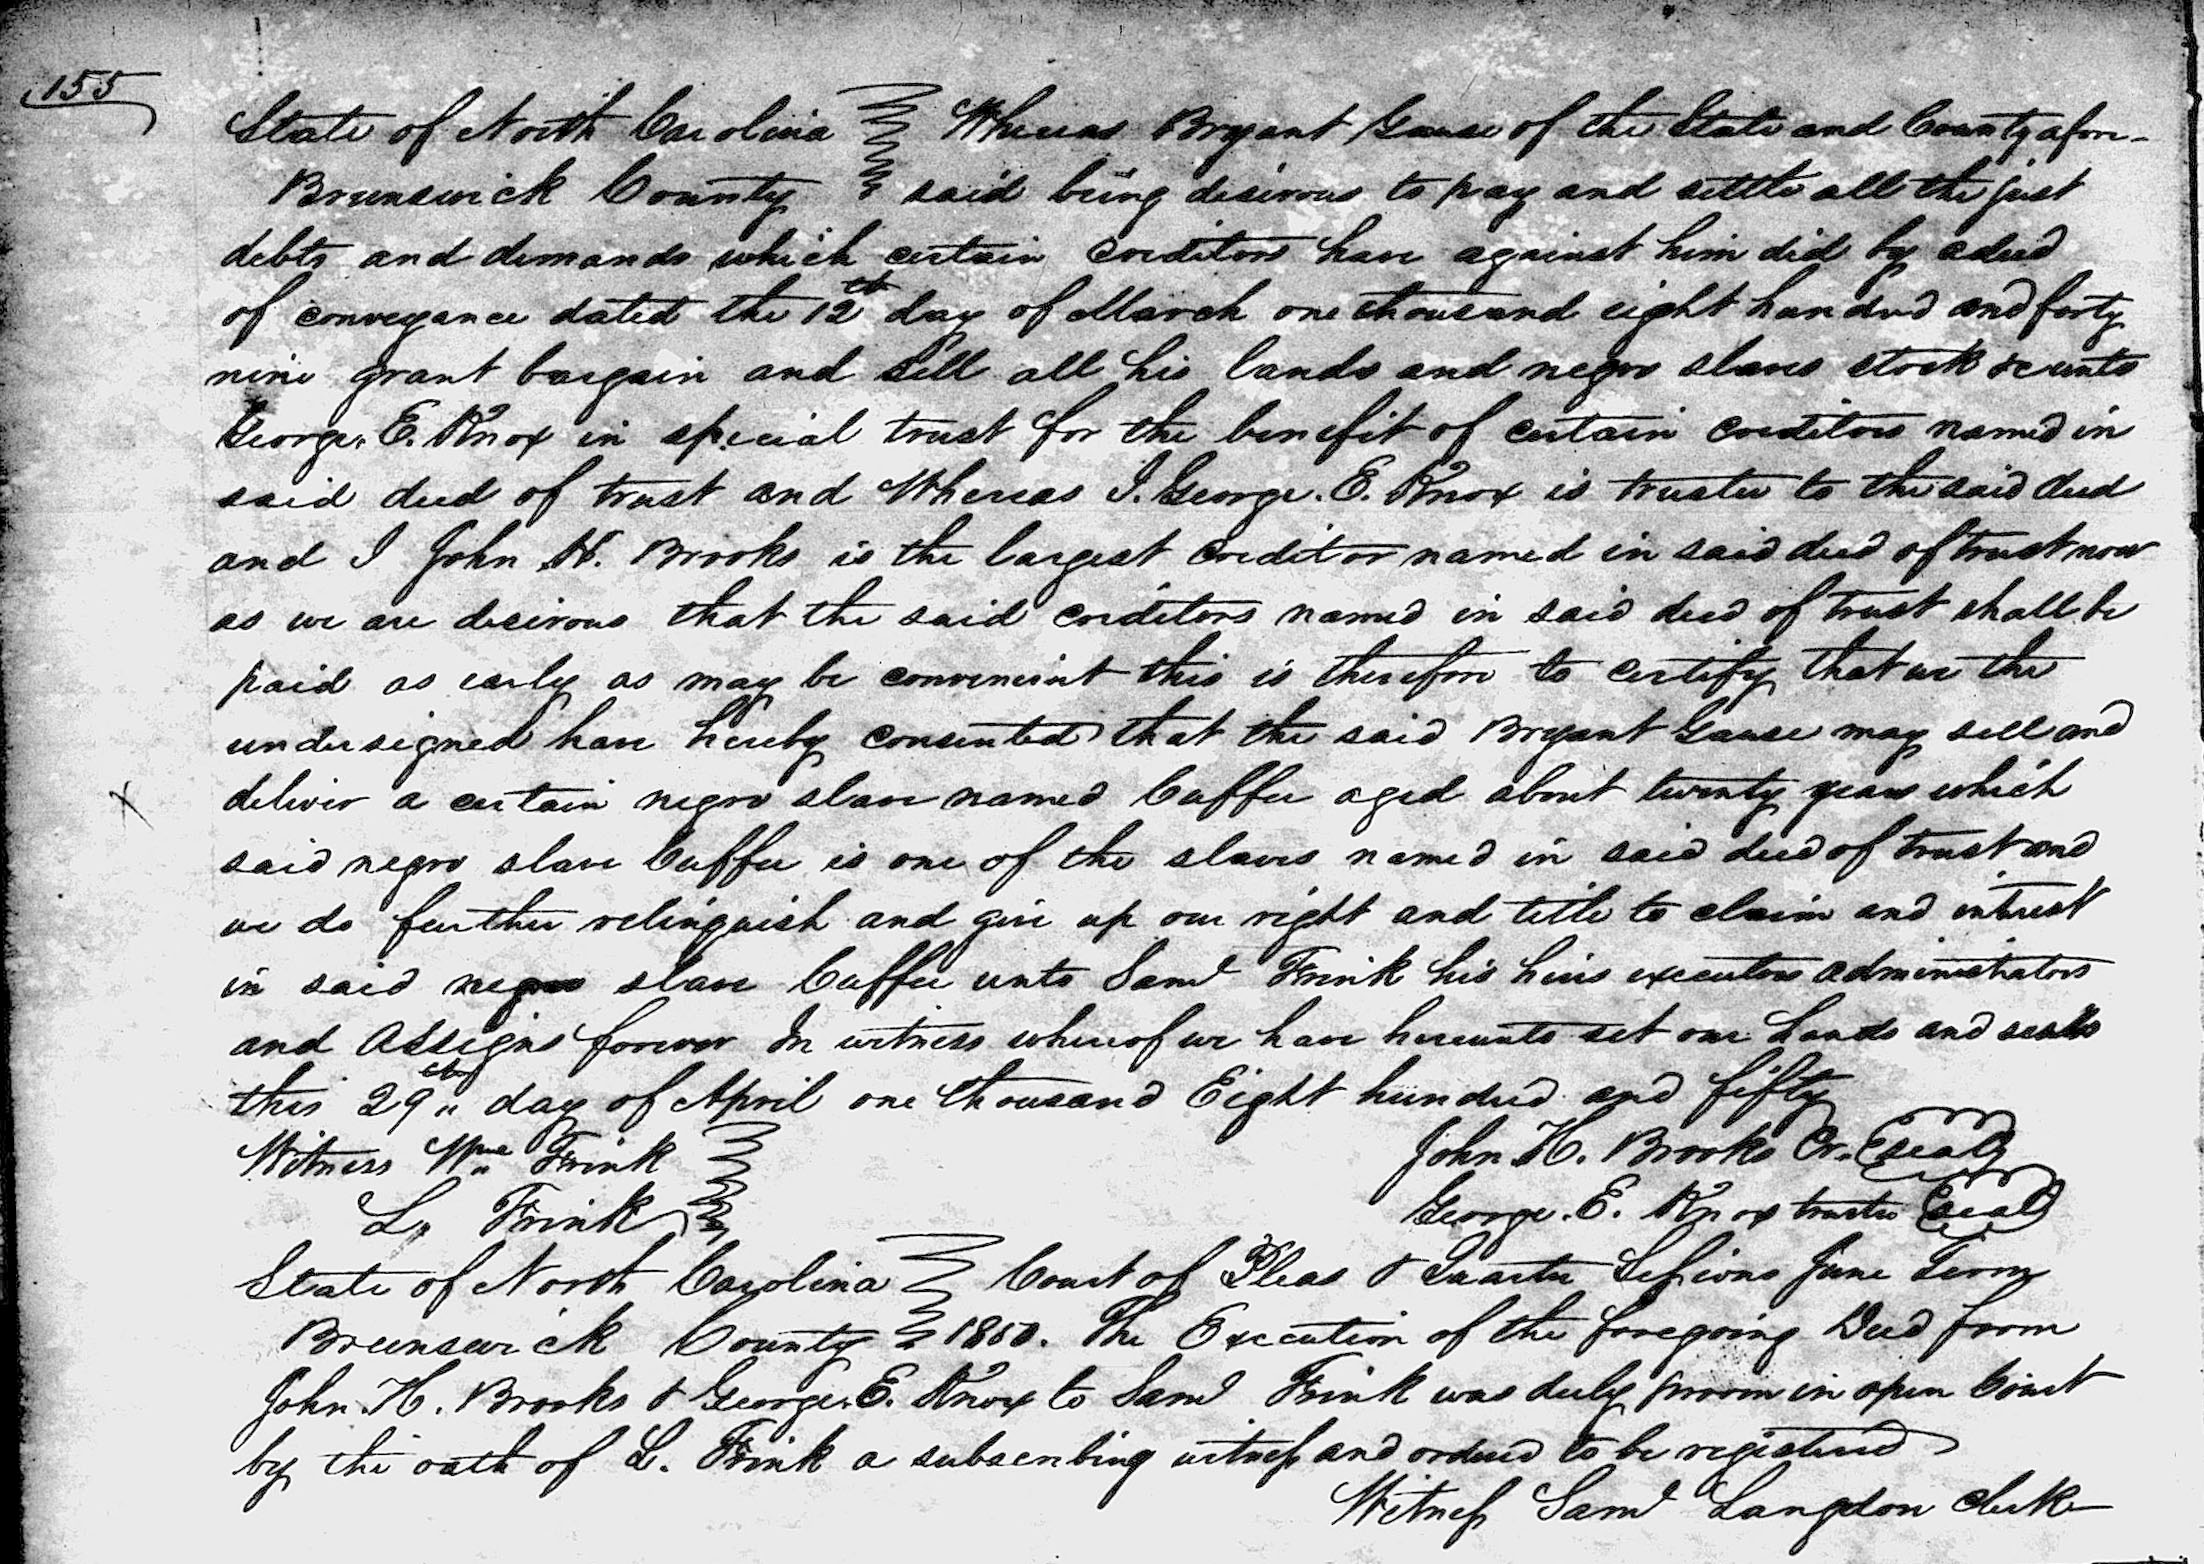 155
State of North Carolina Whereas Bryant Gause of the State and County afore-
Brunswick County said being desirous to pay and settle all the just
debts and demands which certain creditors have against him did by a deed
of conveyance dated the 12th day of March one thousand eight hundred and forty
nine grant bargain and sell all his lands and negro slaves stock &c unto
George. E. Knox in special trust for the benefit of certain creditors named in
said deed of trust and Whereas I. George. E. Knox is trustee to the said deed
and I John H. Brooks is the largest creditor named in said deed of trust now
as we are desirous that the said creditors named in said deed of trust shall be
paid as early as may be convenient this is therefore to certify that we the
undersigned have hereby consented that the said Bryant Gause may sell and
x deliver a certain negro slave named Cuffee aged about twenty years which
said negro slave Cuffee is one of the slaves named in said deed of trust and
we do further relinquish and give up our right and title to claim and intrest
in said negro slave Cuffee unto Saml Frink his heirs executors administrators
and assigns forever In witness whereof we have hereunto set our hands and seals
this 29th day of April one thousand Eight hundred and fifty
Witness Wm Frink John H. Brooks Cr. (seal)
L. Frink George. E. Knox trustee (seal)
State of North Carolina Court of Pleas & Quarter Sessions June Term
Brunswick County 1850. The Execution of the foregoing Deed from
John H. Brooks & George. E. Knox to Saml Frink was duly proven in open Court
by the oath of L. Frink a subscribing witness and ordered to be registered
Witness Saml Langdon Clerk